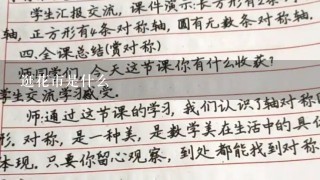 学生汇报交流，课件演示:长方形有2条
轴，正方形有4条对称轴，圆有无数条对称轴.
四.全课总结(赏对称)
师:同学们 天这节课你有什么收获?
逛花市是什么
学生交流学习感受.
师:通过这节课的学习，我们认识了轴对称
形.对称，是一种美，是数学美在生活中的具
体现.只要你留心观察，到处都能找到对称